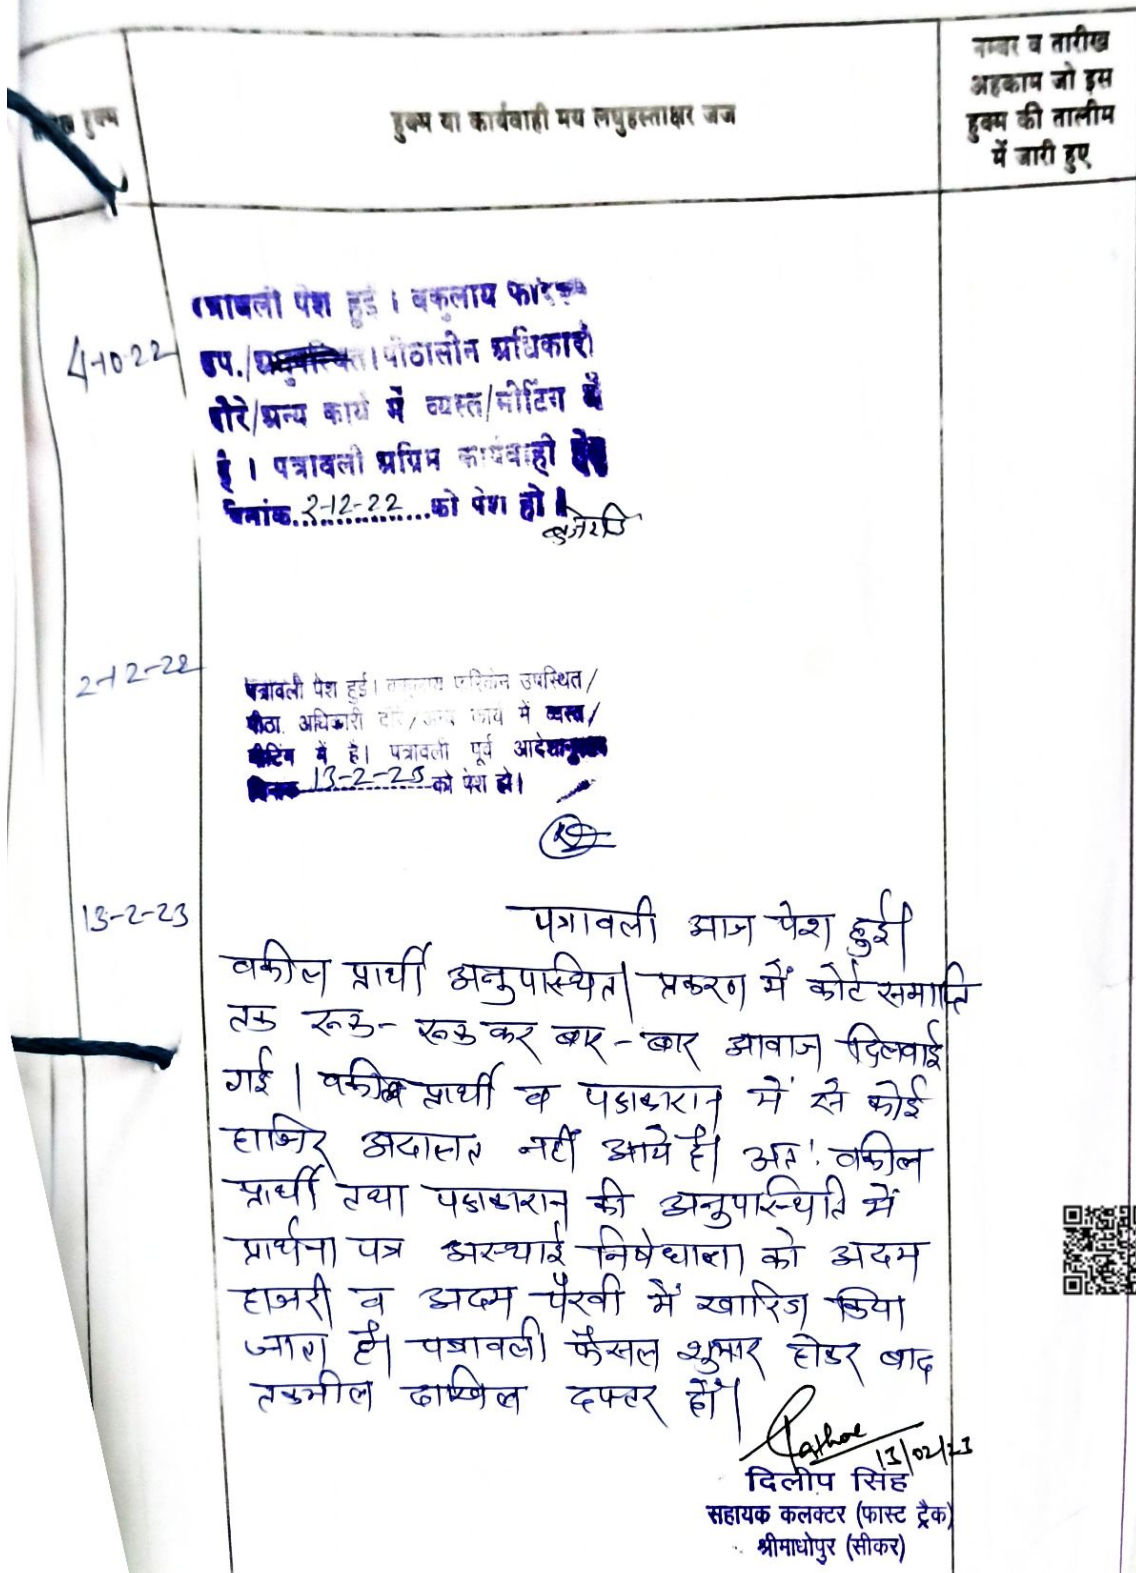 नम्बर व तारीख
अहकाम जो इस
हुक्म की तालीम
में जारी हुए
हुक्म
हुक्म या कार्यवाही मय लघुहस्ताक्षर जज
पत्रावली पेश हुई । वकुलाय फरिकेन
4-10-22
उप./अनुपस्थित । पीठासीन अधिकारी
दौरे/अन्य कार्य में व्यस्त/मीटिंग में
है । पत्रावली अग्रिम कार्यवाही हेतु
दिनांक 2-12-22 को पेश हो ।
2-12-22
पत्रावली पेश हुई। वकुलाय फरिकेन उपस्थित/
पीठा. अधिकारी दौरे/अन्य कार्य में व्यस्त/
मीटिंग में है। पत्रावली पूर्व आदेशानुसार
दिनांक 13-2-23 को पेश हो।
13-2-23
पत्रावली आज पेश हुई।
वकील प्रार्थी अनुपास्थित। प्रकरण में कोर्ट समाप्ति
तक रूक-रूक कर बार-बार आवाज दिलवाई
गई । वकील प्रार्थी व पक्षकारान में से कोई
हाजिर अदालत नहीं आये है। अतः वकील
प्रार्थी तथा पक्षकारान की अनुपास्थिति में
प्रार्थना पत्र अस्थाई निषेधाज्ञा को अदम
हाजरी व अदम पैरवी में खारिज किया
जाता है। पत्रावली फैसल शुमार होकर बाद
तकमील दाखिल दफ्तर हों।
13/02/23
दिलीप सिंह
सहायक कलक्टर (फास्ट ट्रैक)
श्रीमाधोपुर (सीकर)